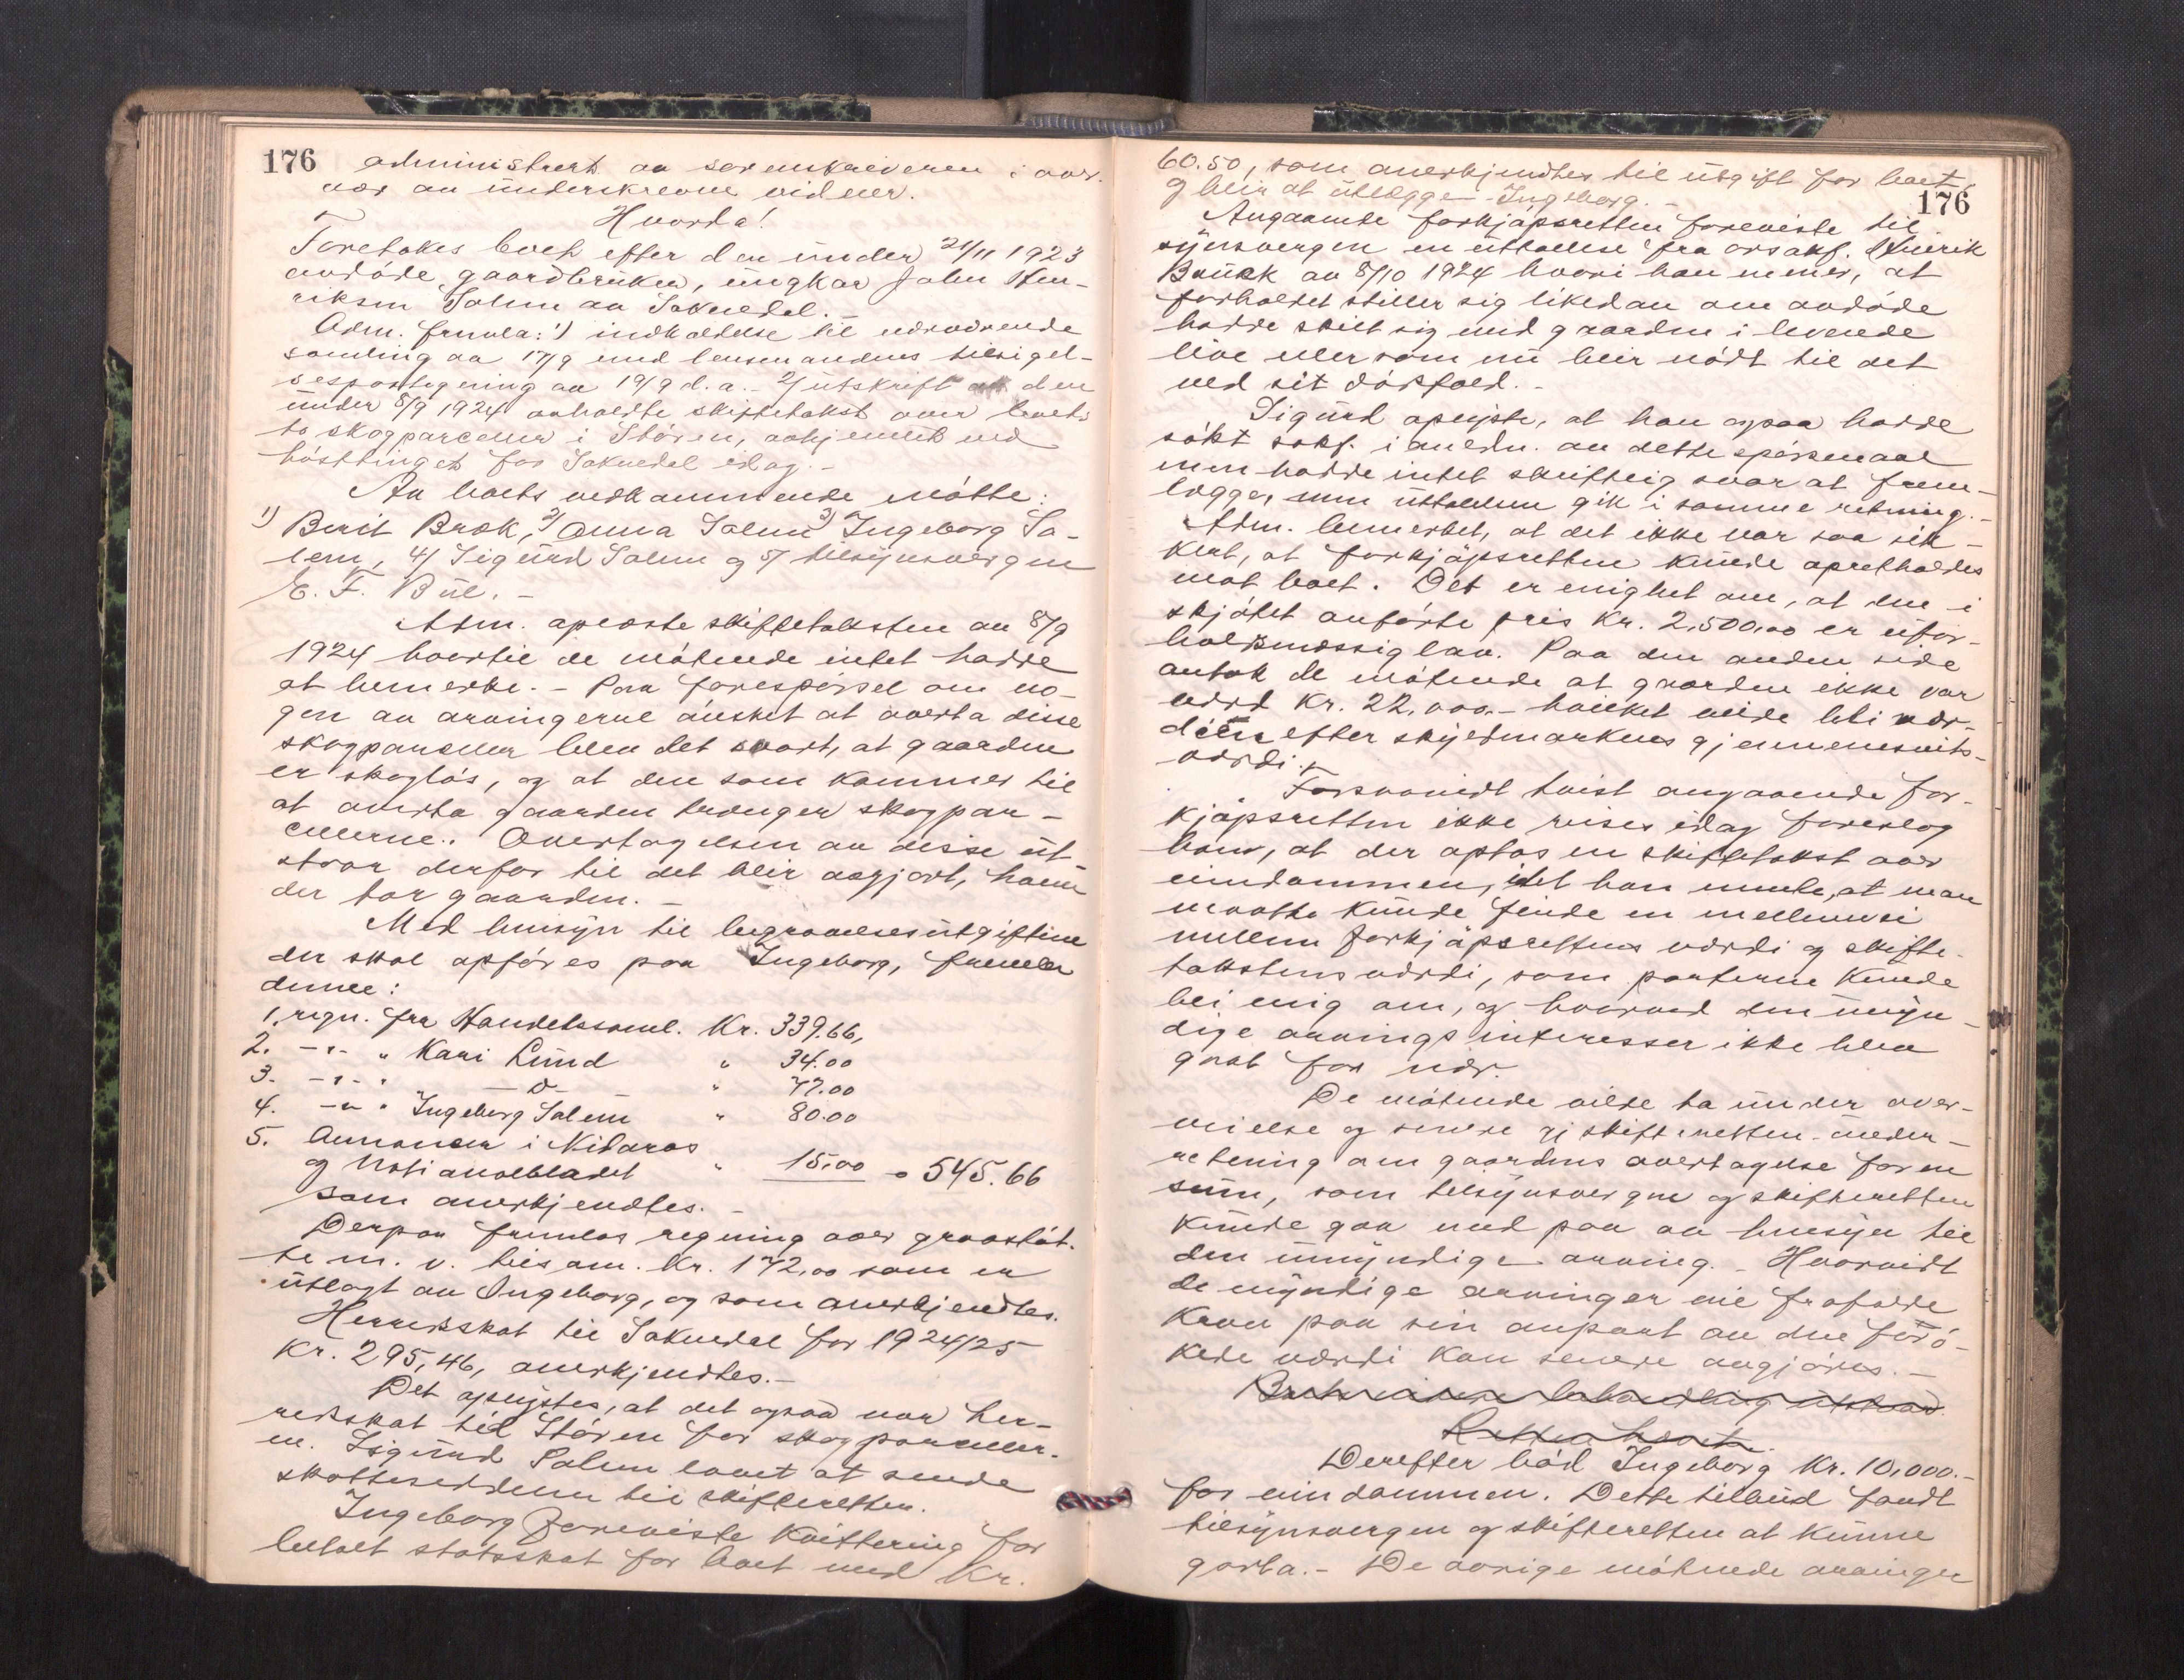 176
administrert av sorenskriveren i over-
vær av underskrevne vidner.
Hvorda!
Foretokes boet efter den under 21/11 1923
avdöde gaardbruker, ungkar John Hen-
riksen Solem av Soknedal.
Adm. fremla: 1) indkaldelse til nærværende
samling av 17/9 med lensmandens tilsigel-
sespaategning av 19/9 d.a. - 2) utskrift av den
under 8/9 1924 avholdte skiftetakst over boets
to skogparceller i Stören, avhjemlet ved
hösttinget for Soknedal idag. -
Av boets vedkommende mötte:
1) Berit Bræk, 2) Anna Solem 3) Ingeborg So-
lem, 4) Sigurd Solem og 5) tilsynsvergen
E. F. Bul. -
Adm. oplæste skiftetaksten av 8/9
1924 hvortil de mötende intet hadde
at bemerke. - Paa forespörsel om no-
gen av arvingerne önsket at overta disse
skogparceller blev det svart, at gaarden
er skoglös, og at den som kommer til
at overta gaarden trænger skogpar-
cellerne. Overtagelsen av disse ut-
staar derfor til det blir avgjort, hvem
der tar gaarden. -
Med hensyn til begravelsesutgiftene
der skal opföres paa Ingeborg, fremla
denne:
1. regn. fra Handelssaml. Kr. 339.66,
2. -"- " Kari Lund " 34.00
3. -"- " -o- " 77.00
4. -"- " Ingeborg Solem " 80.00
5. Annoncer i Nidaros
og Nationalbladet " 15.00 = 545.66
som anerkjendtes. -
Derpaa fremlas regning over gravstöt-
te m. v. tils am. Kr. 172,00 som er
utlagt av Ingeborg, og som anerkjendtes.
Herredskat til Soknedal for 1924/25
Kr. 295,46, anerkjendtes. -
Det oplystes, at det ogsaa var her-
redskat til Stören for skogparceller-
ne. Sigurd Solem lovet at sende
skatteseddelen til skifteretten.
Ingeborg foreviste kvittering for
betalt statsskat for boet med Kr.
60.50, som anerkjendtes til utgift for boet,
og blir at utlægge Ingeborg. -
176
Angaaende forkjöpsretten foreviste til-
synsvergen en uttalelse fra orsakf. Henrik
Bauck av 8/10 1924 hvori han mener, at
forholdet stiller sig likedan om avdöde
hadde skilt sig med gaarden i levende
live eller som nu blir nödt til det
ved sit dödsfald. -
Sigurd oplyste, at han ogsaa hadde
sökt sakf. i anledn. av dette spörsmaal
men hadde intet skriftlig svar at frem-
lægge, men uttalelsen gik i samme retning. -
Adm. bemerket, at det ikke var saa sik-
kert, at forkjöpsretten kunde opretholdes
mot boet. Det er enighet om, at den i
skjötet anförte pris Kr. 2,500,00 er ufor-
holdsmæssig lav. Paa den anden side
antok de mötende at gaarden ikke var
værd Kr. 22.000.- hvilket vilde bli vær-
dien efter skyldmarkens gjennemsnits-
værdi.
Forsaavidt tvist angaaende for-
kjöpsretten ikke reises idag foreslog
han, at der optas en skiftetakst over
eiendommen, idet han mente, at man
maatte kunde finde en mellemvei
mellem forkjöpsrettens værdi og skifte-
takstens værdi, som parterne kunde
bli enig om, og hvorved den umyn-
dige arvings interesser ikke blev
gaat for nær.
De mötende vilde ta under over-
veielse og senere gi skifteretten under-
retning om gaardens overtagelse for en
sum, som tilsynsvergen og skifteretten
kunde gaa med paa av hensyn til
den umyndige arving. - Hvorvidt
de myndige arvinger vil frafalde
krav paa sin anpart av den forö-
kede værdi kan senere avgjöres. -
Boets videre behandling utstaar.
Retten hævet.
Derefter böd Ingeborg Kr. 10,000.-
for eiendommen. Dette tilbud fandt
tilsynsvergen og skifteretten at kunne
godta. - De övrige mötende arvinger